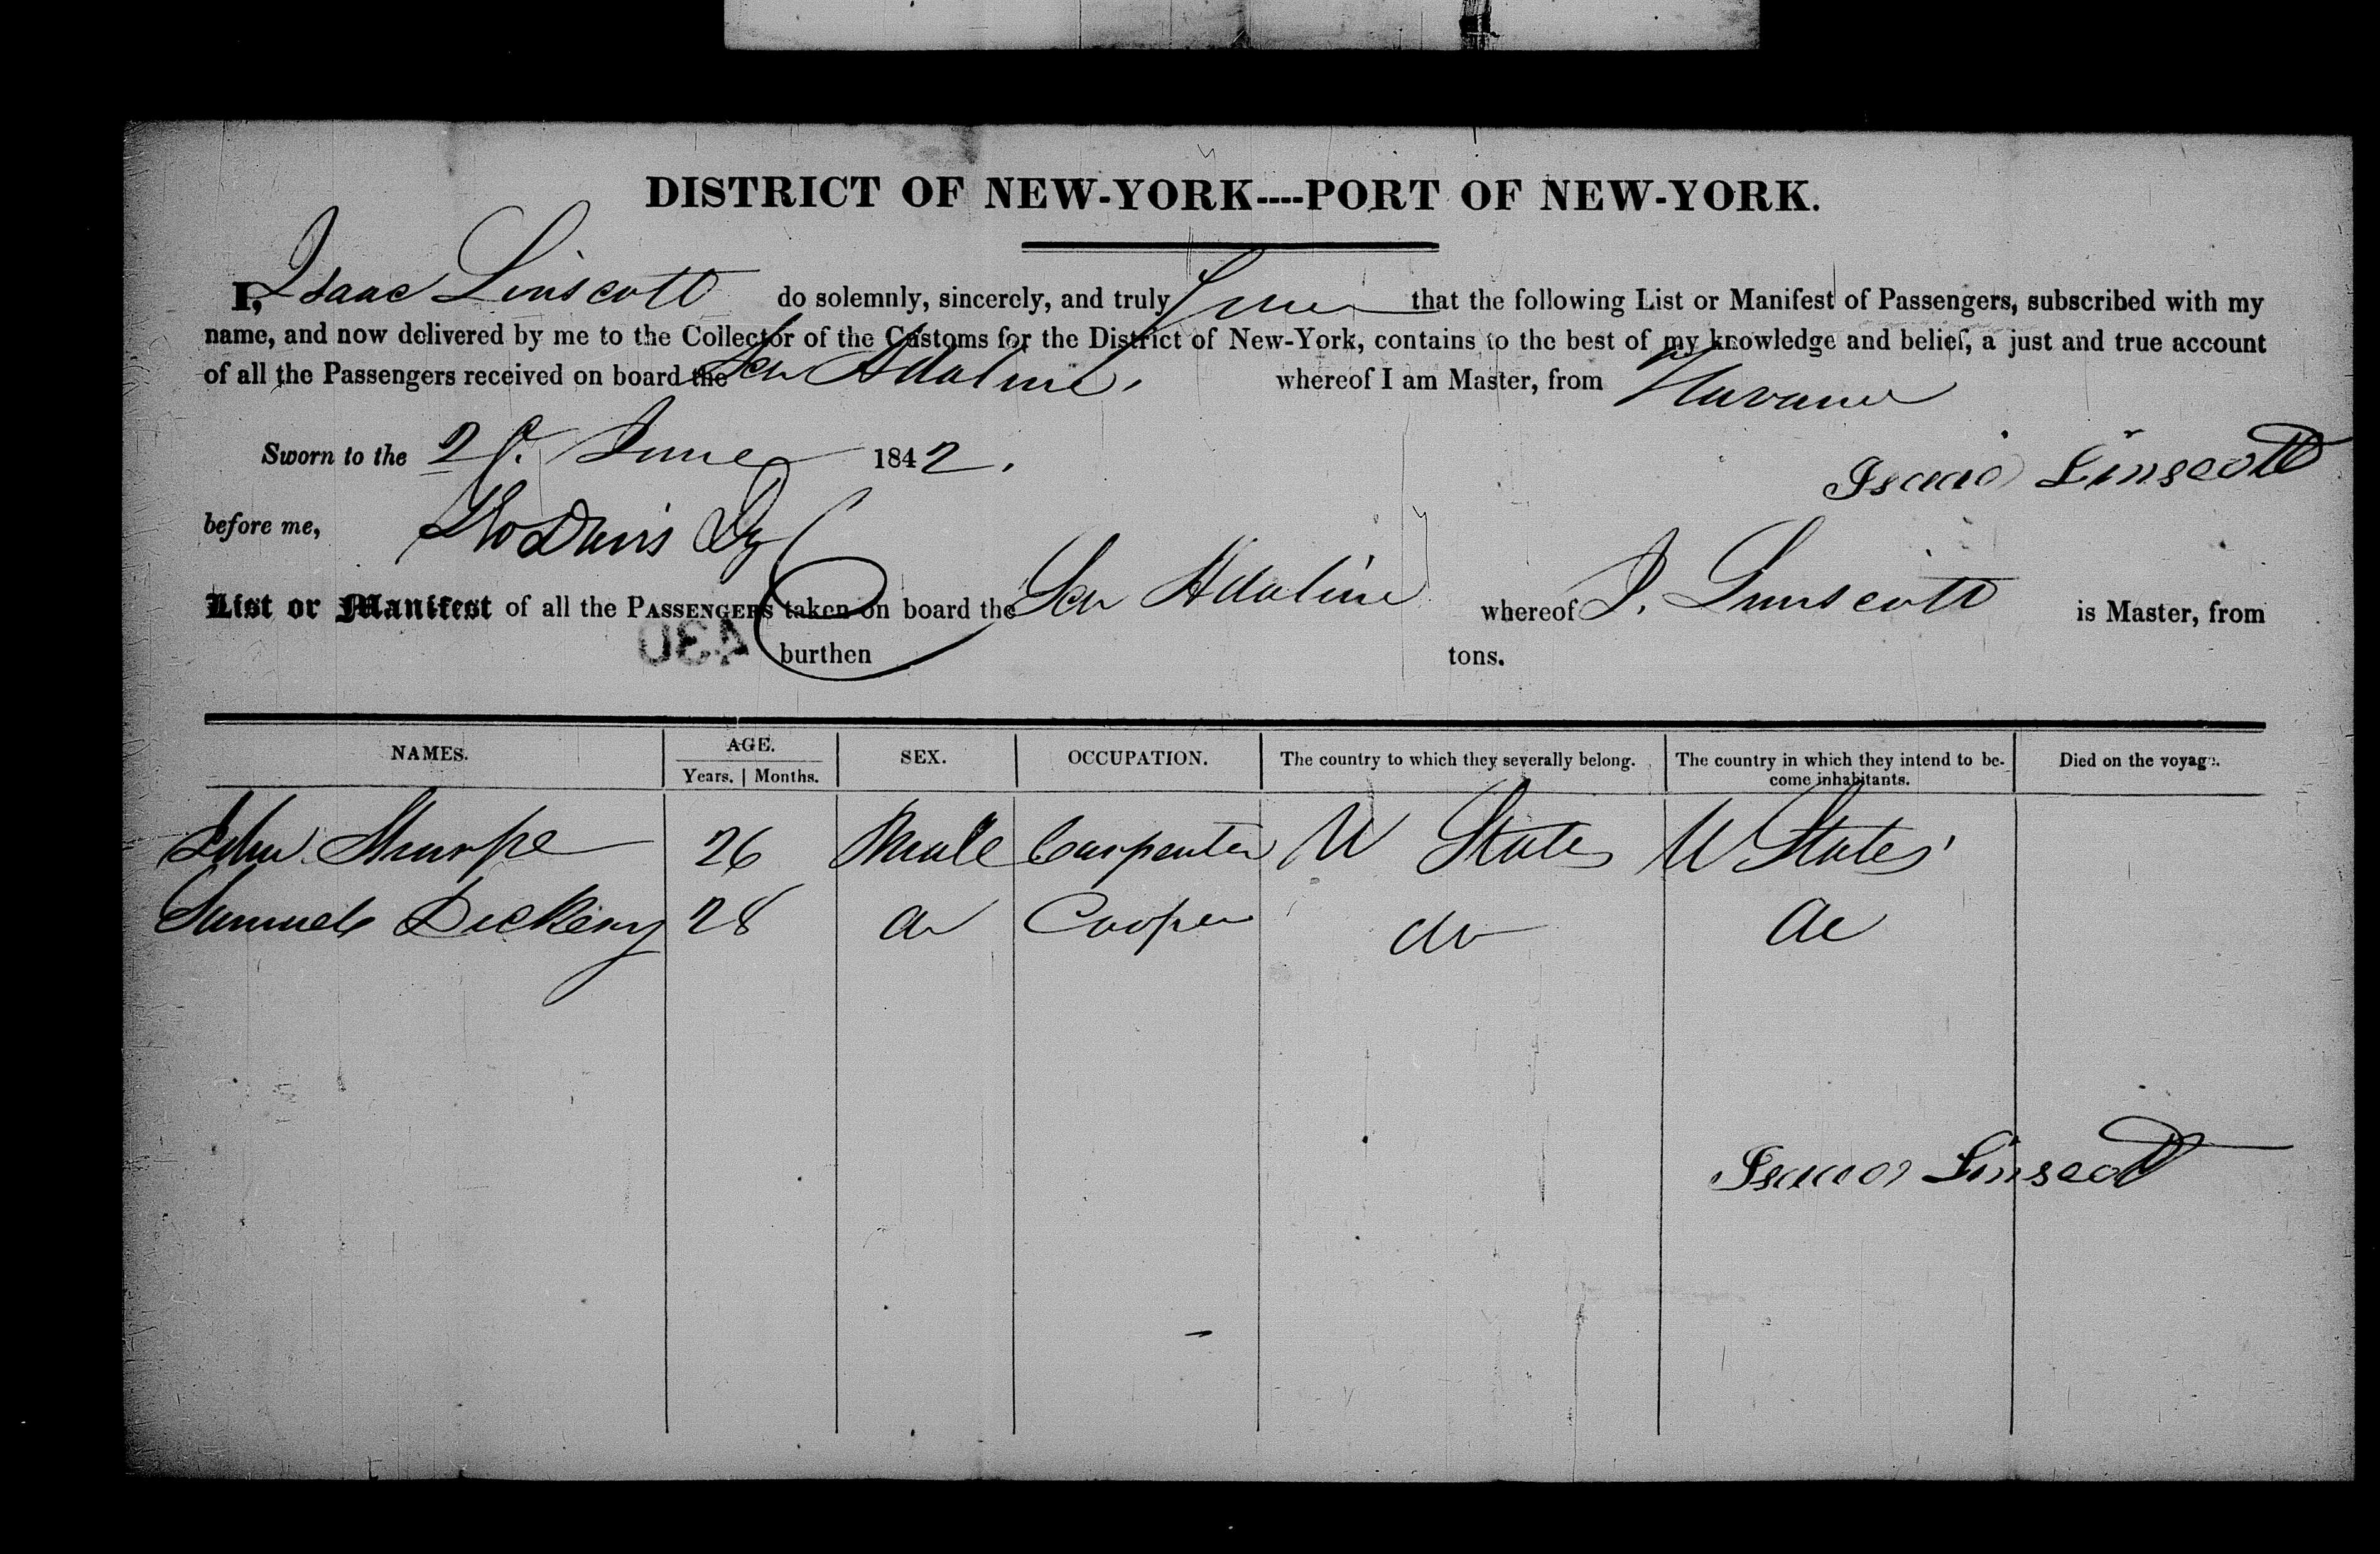 DISTRICT OF NEW-YORK----PORT OF NEW-YORK.
I, Isaac Linscott do solemnly, sincerely, and truly that the following List or Manifest of Passengers, subscribed with my
name, and now delivered by me to the Collector of the Customs for the District of New-York, contains to the best of my knowledge and belief, a just and true account
of all the Passengers received on board the Sch Adaline, whereof I am Master, from Havana
Sworn to the June 1842.
Isaac Linscott
before me, Davis
List or Manifest of all the PASSENGERS taken on board the Sch Adaline whereof I. Linscott is Master, from
430
burthen tons.
NAMES. AGE. SEX. OCCUPATION. The country to which they severally belong. The country in which they intend to be- Died on the voyage.
Years. Months. come inhabitants.
John Sharpe 26 Male Carpenter U States U States
Samuel Dickery 28 do Cooper do do
Isaac Linscott